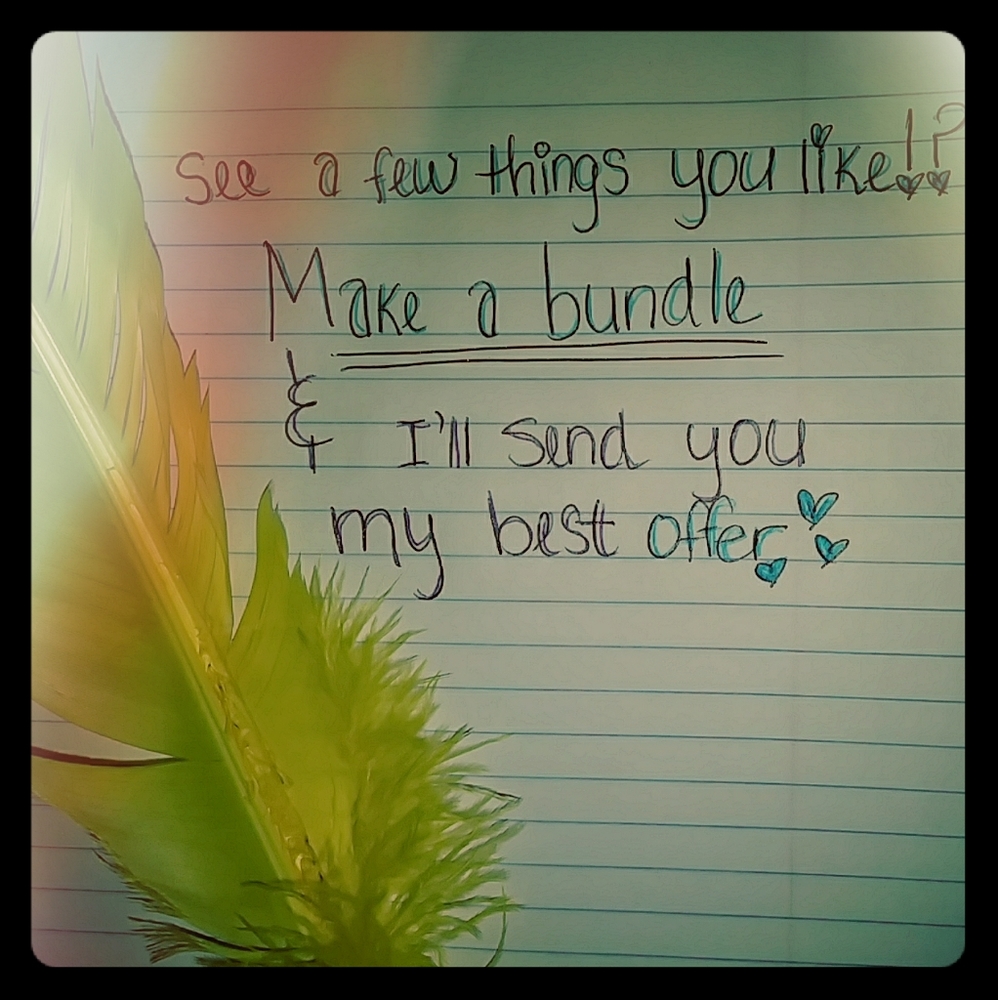 See a few things you like!?
Make a bundle
& I'll send you
my best offer